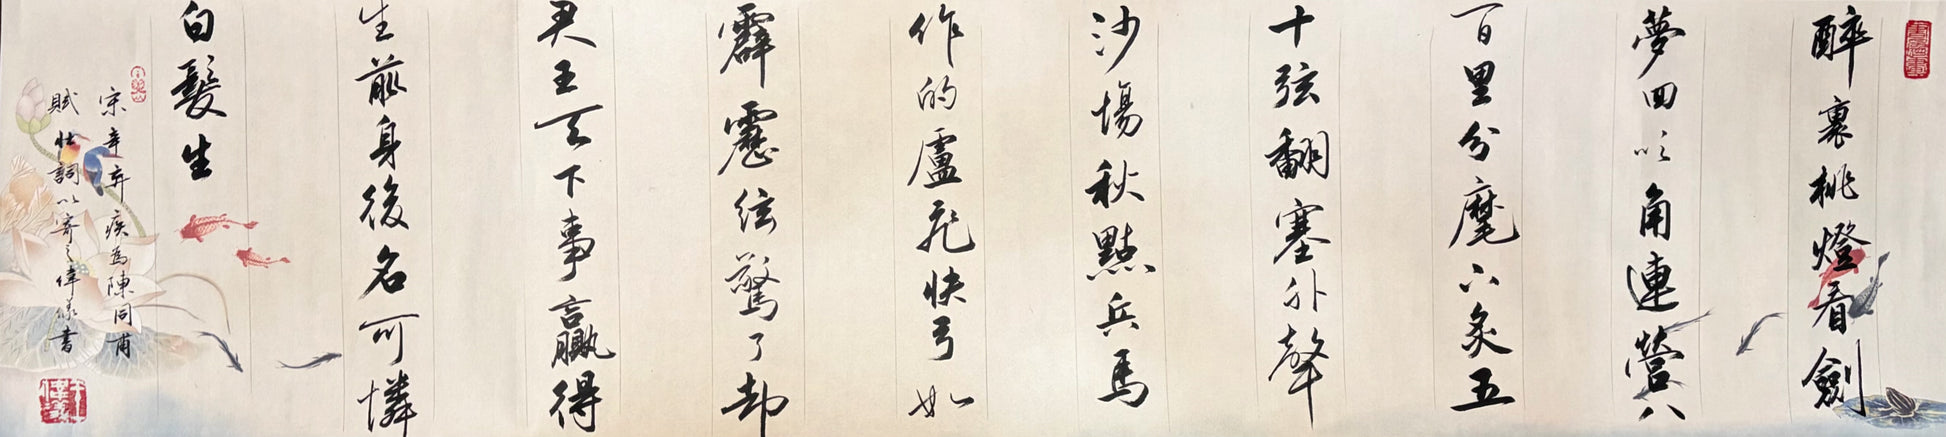 醉裏桃燈看劍
夢回吹角連營八
百里分麾下炙五
十弦翻塞外聲
沙場秋點兵馬
作的盧飛快弓如
霹靂弦驚了却
君王天下事贏得
生前身後名可憐
白髮生
宋辛弃疾為陳同甫
賦壮詞以寄之偉書